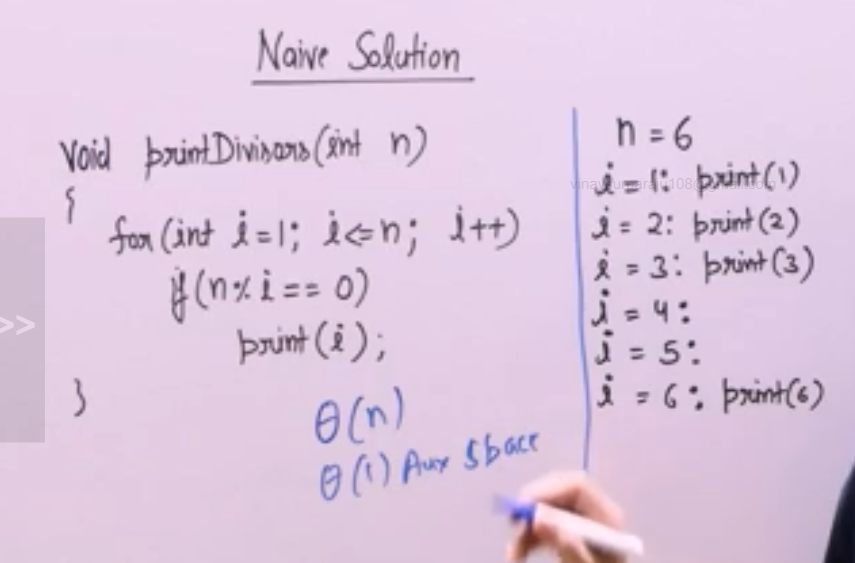 Naive Solution
Void printDivisors(int n)
{
for(int i=1; i<=n; i++)
if(n%i == 0)
print(i);
}
θ(n)
θ(1) Aux Space
n = 6
i = 1: print(1)
i = 2: print(2)
i = 3: print(3)
i = 4:
i = 5:
i = 6: print(6)
>>